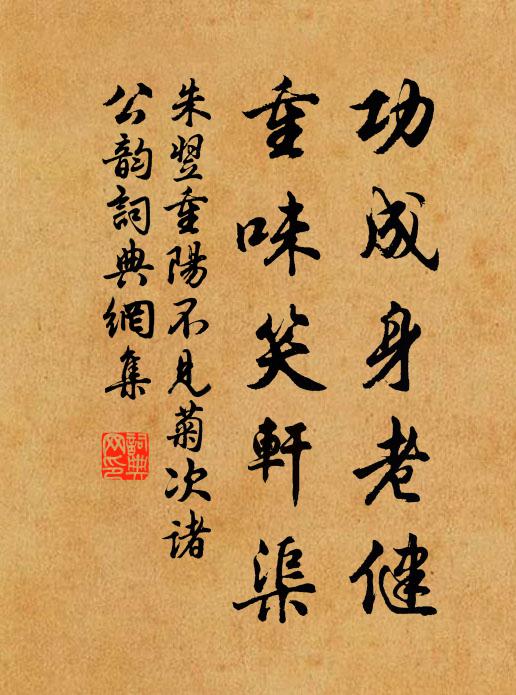 功成身老健
重味笑軒渠
朱翌重陽不見菊次諸
公韵詞典網集
詞典
网印